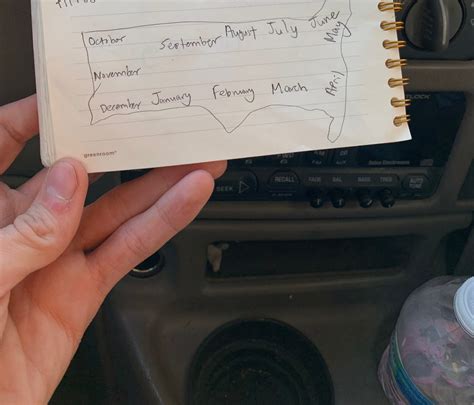 October September August July June
November May
December January February March April
greenroom
SEEK RECALL FADE BAL BASS TREB AUTO TONE